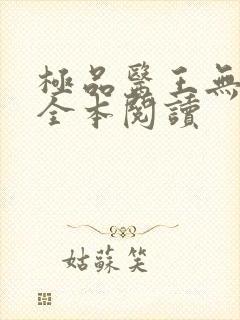 極品醫王無
全本閱讀
姑蘇笑